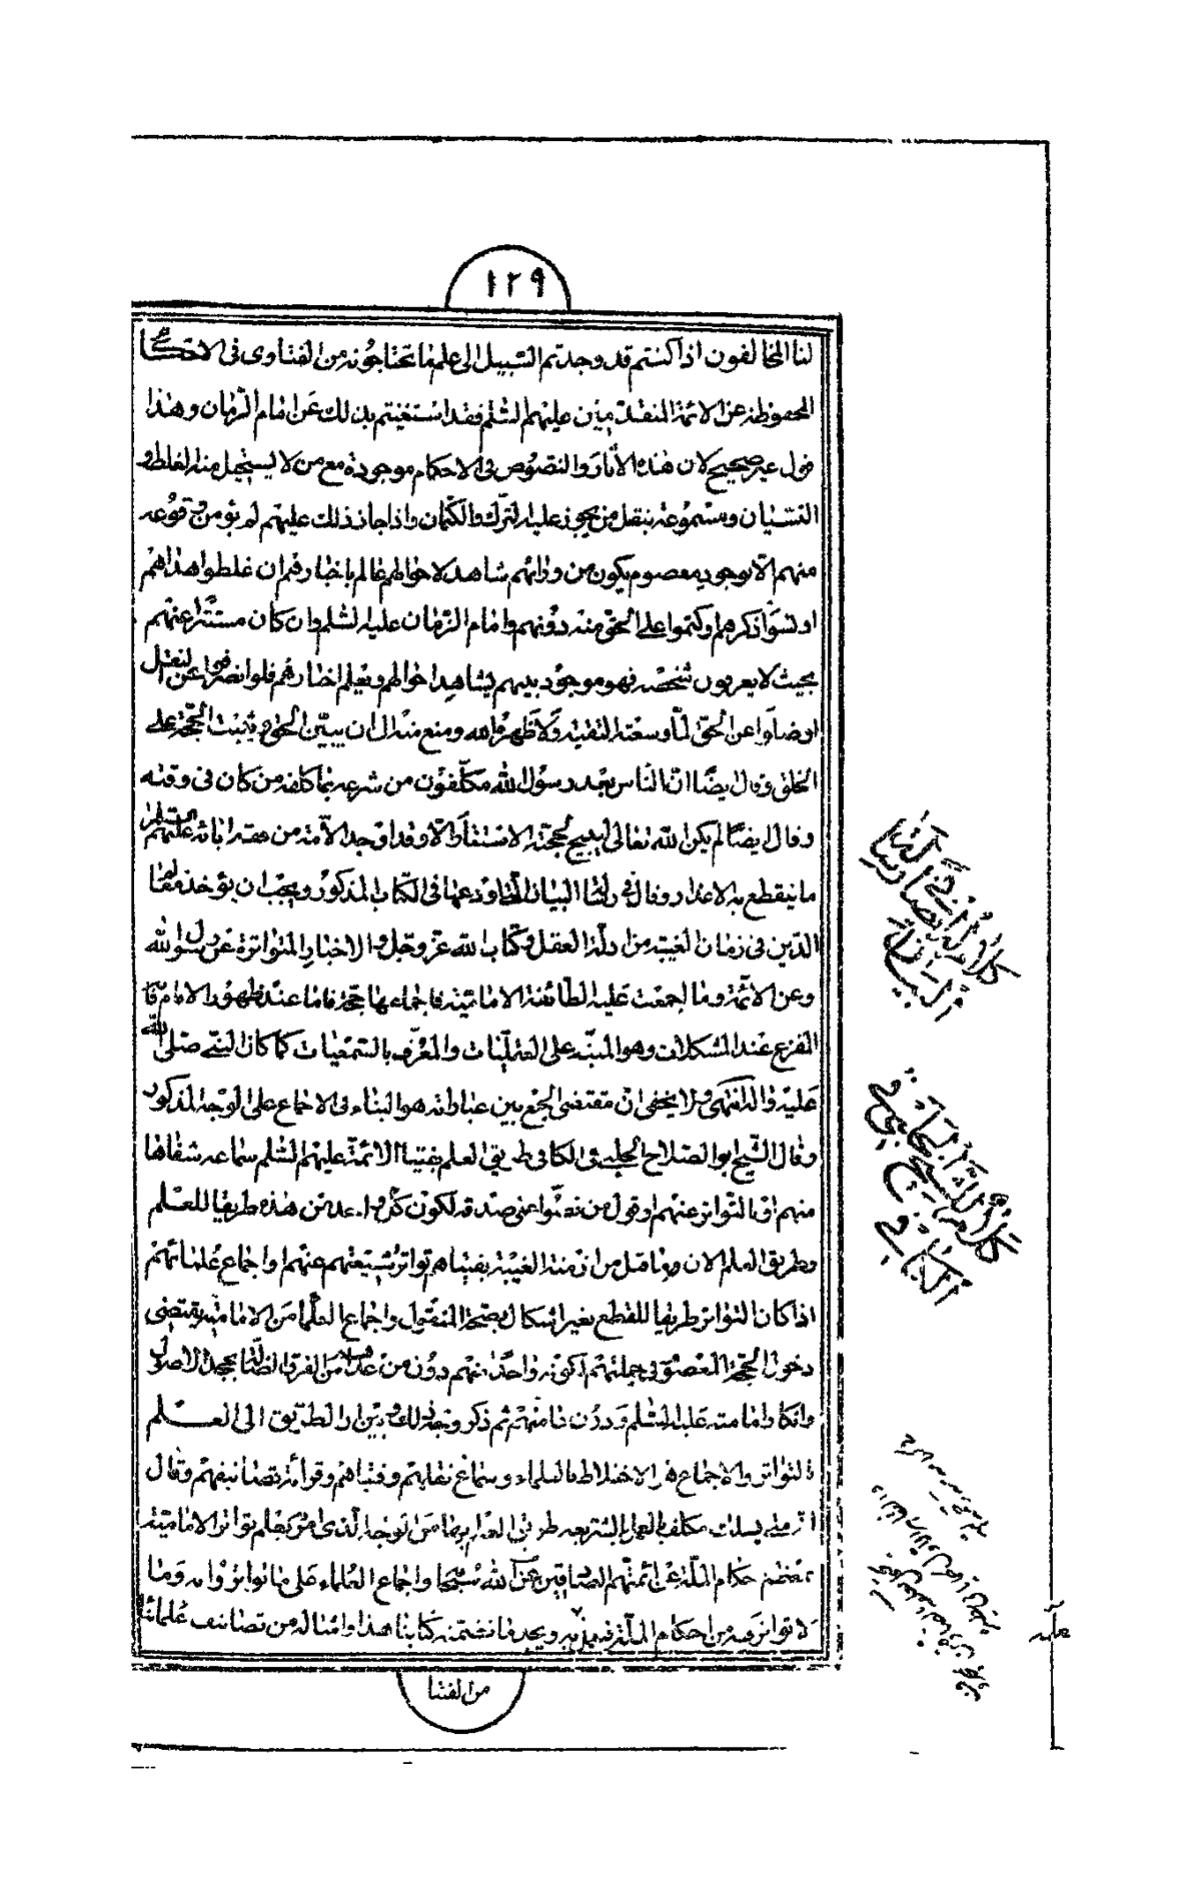 ١٢٩
لنا المخالفون اذا كنتم قد وجدتم السبيل الى علم ما تحتاجونه من الفتاوى فى الاحكام
المحفوظة عن الائمة المتقدمين عليهم السلم فقد استغنيتم بذلك عن امام الزمان وهذا
قول غير صحيح لان هذه الأثار والنصوص فى الاحكام موجودة مع من لا يستحيل منه الغلط و
النسيان ومسموعة بنقل من يجوز عليه الترك والكتمان واذا جاز ذلك عليهم لم يؤمن وقوعه
منهم الا بوجود معصوم يكون من ورائهم شاهد لاحوالهم عالم باخبارهم ان غلطوا هداهم
او نسوا ذكرهم او كتموا علم الحق منه دونهم وامام الزمان عليه السلم وان كان مستترا عنهم
بحيث لا يعرفون شخصه فهو موجود بينهم يشاهد احوالهم ويعلم اخبارهم فلو انصرفوا عن النقل
او ضلوا عن الحق لما وسعته التقية ولاظهره الله ومنع منه الى ان يبين الحق ويثبت الحجة على
الخلق وقال ايضا ان الناس بعد رسول الله مكلفون من شرعه بما كلفه من كان فى وقته
وقال ايضا لم يكن الله تعالى ليبيح لحجته الاستتار الا وقد اوجد الامة من فقه ابائه عليهم السلم
ما ينقطع به الاعذار وقال فى رسالة البيان التى اودعها فى الكتاب المذكور ويجب ان يؤخذ معالم
الدين فى زمان الغيبة من ادلة العقل وكتاب الله عز وجل والاخبار المتواترة عن رسول الله
وعن الائمة وما اجمعت عليه الطائفة الامامية فاجماعها حجة فاما عند ظهور الامام فا
المفزع عند المشكلات وهو المنبه على العقليات والمعرف بالسمعيات كما كان النبى صلى الله
عليه واله انتهى ولا يخفى ان مقتضى الجمع بين عباراته هو البناء فى الاجماع على الوجه المذكور
وقال الشيخ ابو الصلاح الحلبى فى الكافى طريق العلم بفتيا الائمة عليهم السلم سماعه شفاها
منهم او بالتواتر عنهم او قول من نصوا على صدقه لكون كل واحد من هذه طريقا للعلم
وطريق العلم الان وما قبل من ازمنة الغيبة بفتياهم تواتر شيعتهم عنهم واجماع علمائهم
اذا كان التواتر طريقا للقطع بغير اشكال بصحة المنقول واجماع العلماء من الامامية يقتضى
دخول الحجة المعصوم فى جملتهم لكونه واحدا منهم دون من عداهم من الفرق الضالة بجحد الاصول
وانكار امامته عليه السلم ودون ثم ذكر وجه ذلك وبين ان الطريق الى العلم
بالتواتر والاجماع هو الاختلاط بالعلماء وسماع نقلهم وفتياهم وقرائة تصانيفهم وقال
مكلف العمل بالشريعة طريق العلم بها من الوجه الذى تواتر الامامية
بمعظم احكام الملة عن ائمتهم الصادقين عن الله سبحانه واجماع العلماء على ما تواتروا به وما
لا تواتر فيه من احكام الملة ويجد ما تضمنه كتابنا هذا وامثاله من تصانيف علمائنا
من الفتيا
كلام اخر فى رسالة البيان
كلام الشيخ الحلبى فى الكافى
عليه